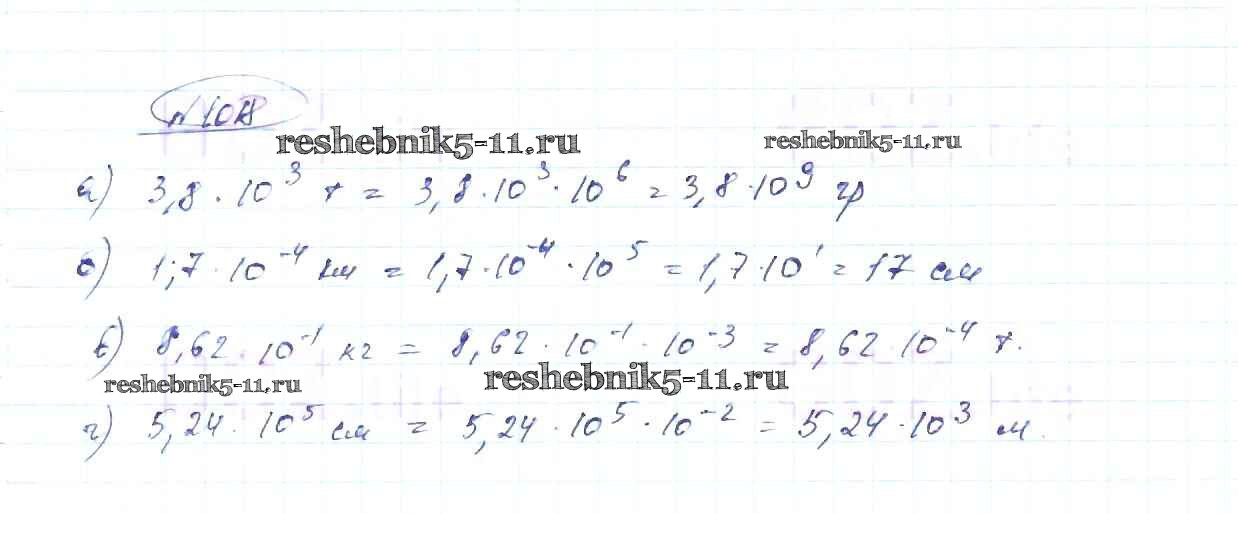 reshebnik5-11.ru reshebnik5-11.ru
а) 3,8 · 10³ т = 3,8 · 10³ · 10⁶ = 3,8 · 10⁹ гр
б) 1,7 · 10⁻⁴ км = 1,7 · 10⁻⁴ · 10⁵ = 1,7 · 10¹ = 17 см
в) 8,62 · 10⁻¹ кг = 8,62 · 10⁻¹ · 10⁻³ = 8,62 · 10⁻⁴ т.
reshebnik5-11.ru reshebnik5-11.ru
г) 5,24 · 10⁵ см = 5,24 · 10⁵ · 10⁻² = 5,24 · 10³ м.